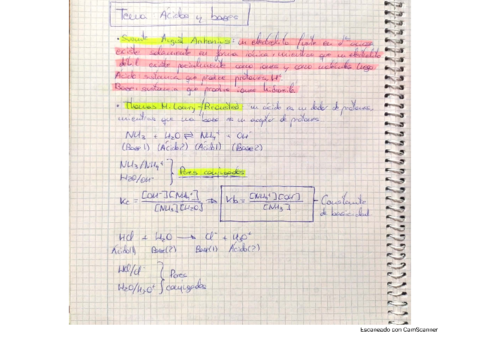 Tema Ácidos y bases
• Svante August Arrhenius: un electrolito fuerte en disol. acuosa
existe solamente en forma iónica mientras que un electrolito
débil existe parcialmente como iones y como moléculas
Ácido: sustancia que produce protones H⁺
Base: sustancia que produce iones hidroxilo
• Thomas M. Lowry-Brönsted: un ácido es un dador de protones
mientras que una base es un aceptor de protones
NH₃ + H₂O ⇌ NH₄⁺ + OH⁻
(Base1) (Ácido2) (Ácido1) (Base2)
NH₃/NH₄⁺
H₂O/OH⁻ } Pares conjugados
Kc = [OH⁻][NH₄⁺] / [NH₃][H₂O] ⇒ Kb = [NH₄⁺][OH⁻] / [NH₃] → Constante de basicidad
HCl + H₂O → Cl⁻ + H₃O⁺
Ácido1 Base(2) Base(1) Ácido(2)
HCl/Cl⁻
H₂O/H₃O⁺ } Pares conjugados
Escaneado con CamScanner